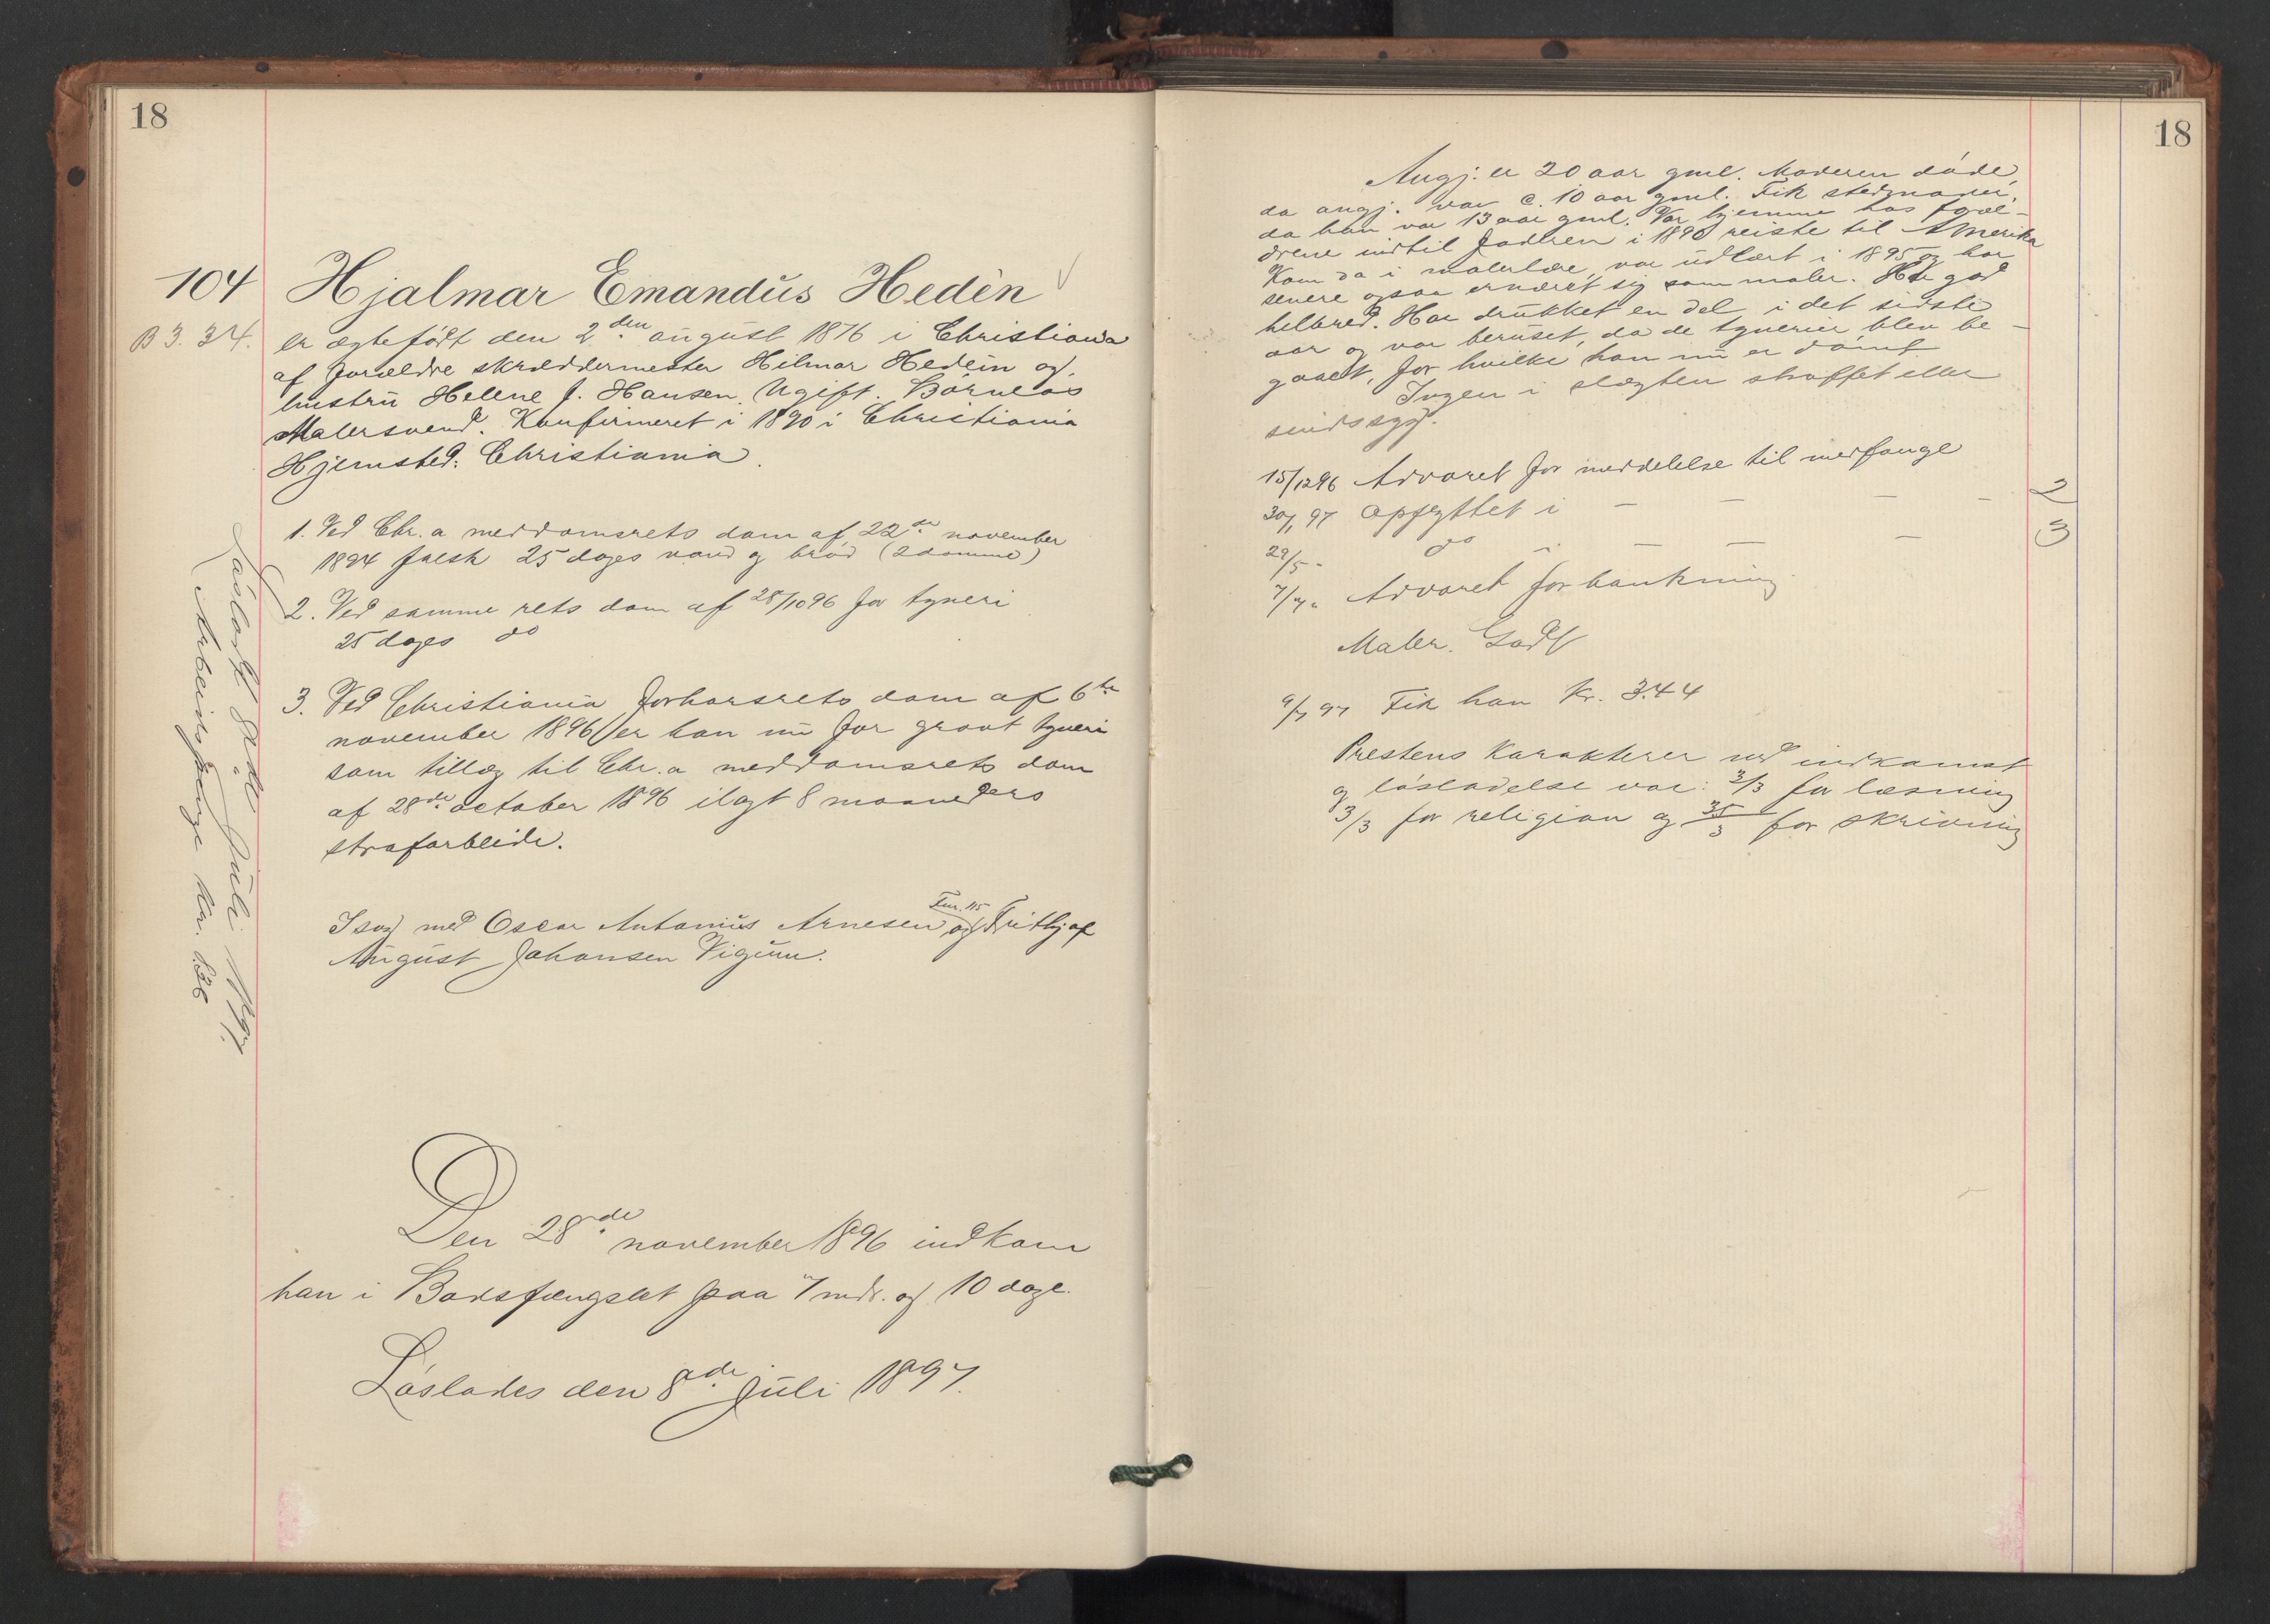 18
104 Hjalmar Emandŭs Hedèn
B 3. 34. er ægtefødt den 2den aŭgŭst 1876 i Christiania
af forældre skræddermester Hilmar Hedèin og
hŭstrŭ Helene J. Hansen. Ugift. Børnløs
Malersvend. Konfirmeret i 1890 i Christiania
Hjemsted: Christiania.
1. Ved Chr.a meddomsrets dom af 22de november
1894 falsk 25 dages vand og brød (2 domme)
2. Ved samme rets dom af 28/10 96 for tyveri
25 dages do
3. Ved Christiania forhørsrets dom af 6te
november 1896 er han nŭ for grovt tyveri
som tillæg til Chr.a meddomsrets dom
af 28de october 1896 ilagt 8 maaneders
strafarbeide.
I sag med Oscar Antoniŭs Arnesen, Fnr. 115 og Fritjof
Aŭgŭst Johansen Vigŭm.
Løsladt 8de Jŭli 1897.
Arbeidspenge kr.
Den 28de november 1896 indkom
han i Bodsfængslet paa 7 mdr. og 10 dage.
Løslades den 8de Jŭli 1897.
18
Angj. er 20 aar gml. Moderen døde,
da angj. var c. 10 aar gml. Fik stedmoder,
da han var 13 aar gml. Var hjemme hos foræl-
drene indtil faderen i 1890 reiste til Amerika
Kom da i malerlære, var ŭdlært i 1895 og har
senere ogsaa ernæret sig som maler. Har god
helbred. Har drŭkket en del i det sidste
aar og var berŭset, da de tyverier blev be-
gaaet, for hvilke han nŭ er dømt
Ingen i slægten straffet eller
sindssyg.
15/12 96 Advaret for meddelelse til medfange
30/1 97 Opflyttet i — — — — 2
29/5 - do i — — — 3
7/7 " Advaret for bankning
Maler. Godt
9/7 97 Fik han kr. 3.44
Prestens karakterer ved indkomst
og løsladelse var: 3/3 for læsning
3/3 for religion og 35/3 for skrivning